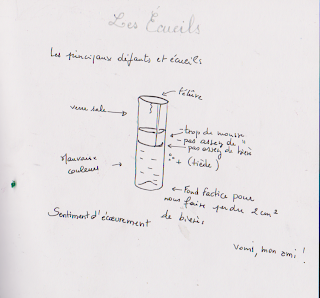 Les Écueils
Les principaux défauts et écueils
fêlure
verre sale
trop de mousse
pas assez de "
pas assez de bière
+ (tiède)
Mauvaise couleur
Fond factice pour
nous faire perdre 2 cm²
de bière
Sentiment d'écœurement
Vomis, mon ami !